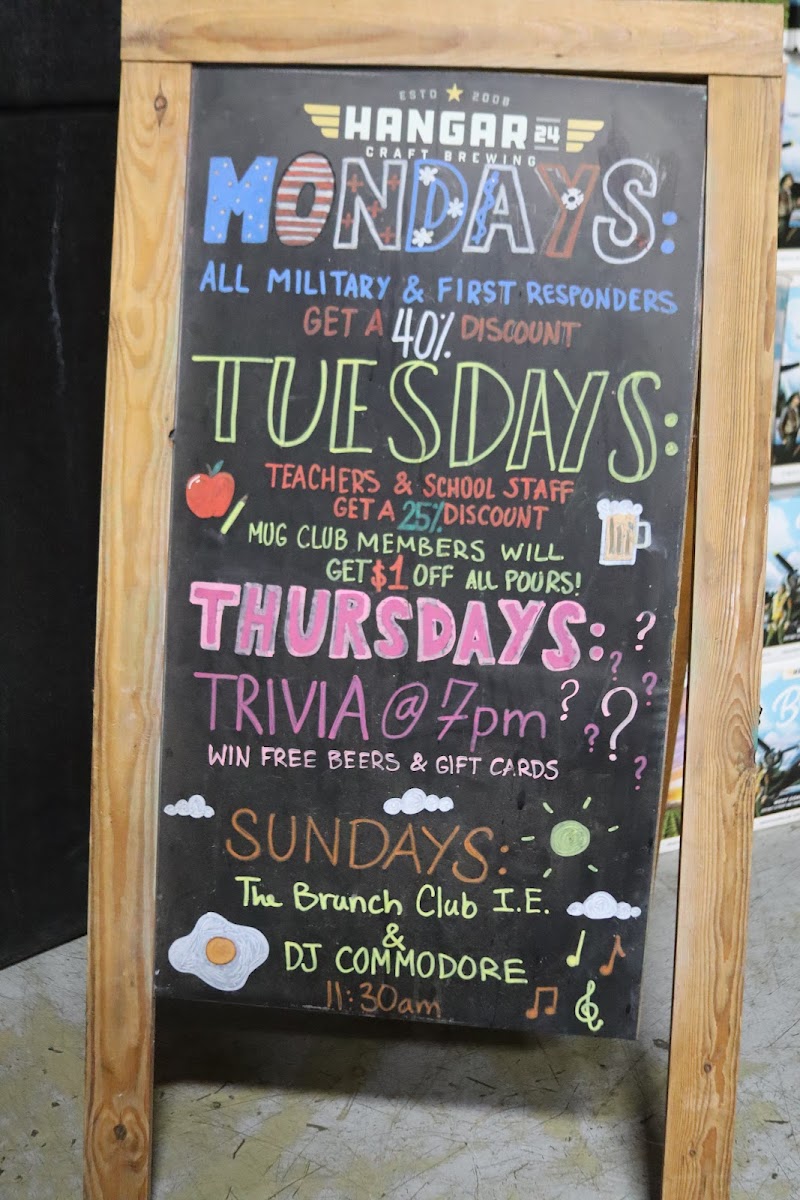 ESTD ★ 2008
HANGAR 24
CRAFT BREWING
MONDAYS:
ALL MILITARY & FIRST RESPONDERS
GET A 40% DISCOUNT
TUESDAYS:
TEACHERS & SCHOOL STAFF
GET A 25% DISCOUNT
MUG CLUB MEMBERS WILL
GET $1 OFF ALL POURS!
THURSDAYS:
TRIVIA @ 7pm
WIN FREE BEERS & GIFT CARDS
SUNDAYS:
The Brunch Club I.E.
&
DJ COMMODORE
11:30am